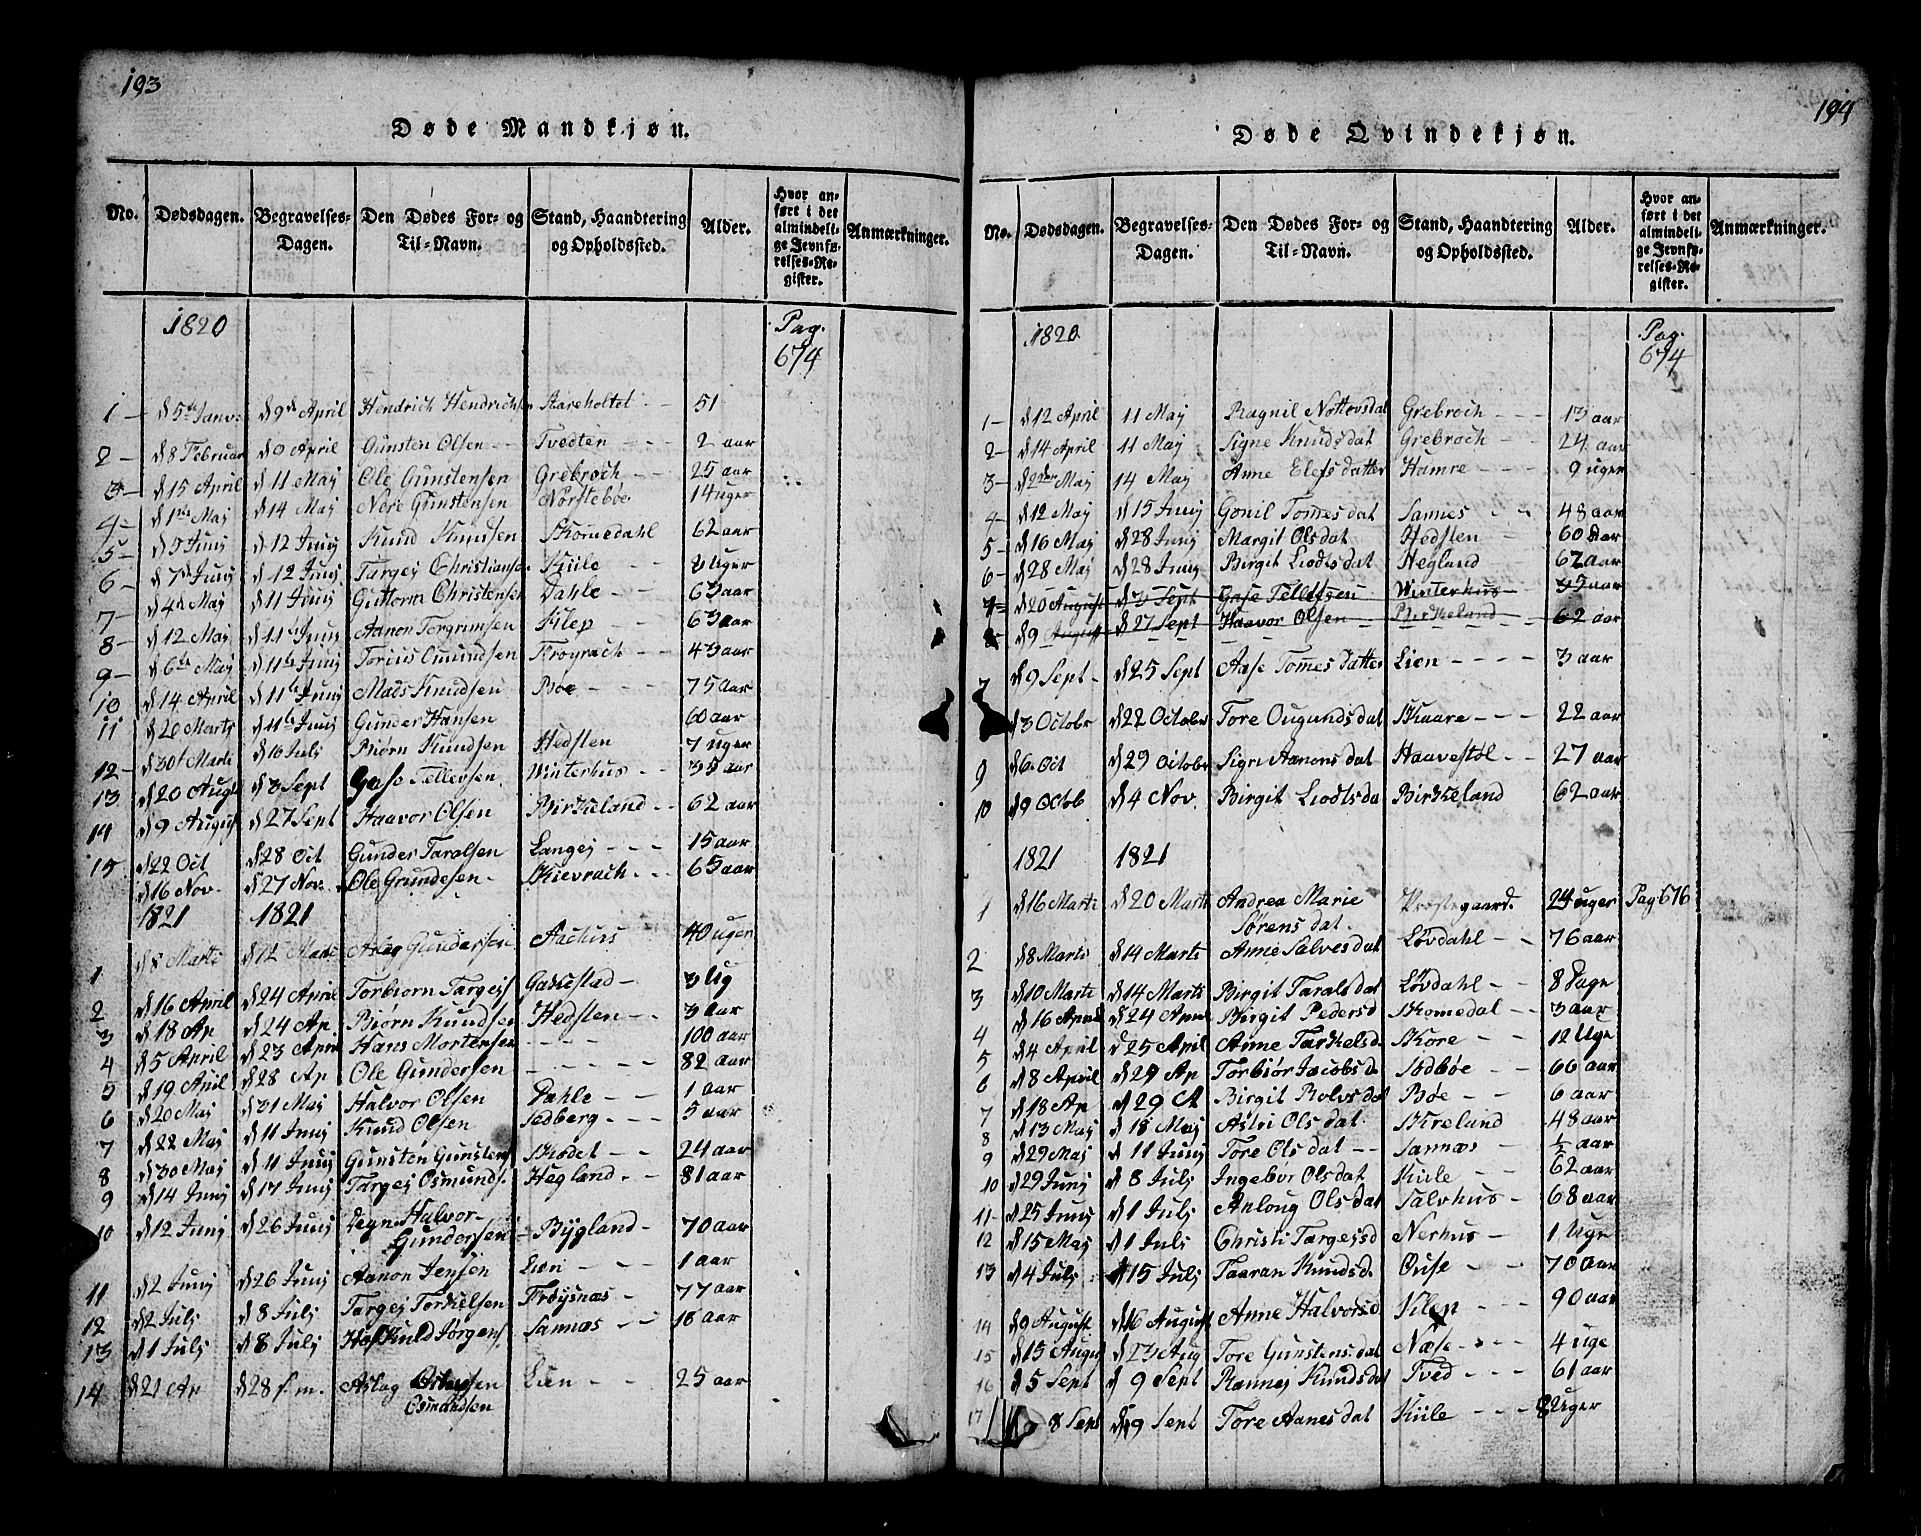 193
Døde Mandkjøn.
No. Dødsdagen. Begravelses-Dagen. Den Dødes For- og Til-Navn. Stand, Haandtering og Opholdssted. Alder. Hvor anført i det almindelige Jevnførelses-Register. Anmærkninger.
1820 Pag. 674
1 - d 5te Janv. d 9de April Hendrich Hendrichsen Aareholtet - - 51
2 - d 8 Februar d 9 April Gunsten Olsen - - Tvedten - - - 2 aar
3 - d 15 April d 11 Maj Ole Gunstensen Grebroch - - 25 aar
4 - d 1ste Maj d 14 Maj Nere Gunstensen Norstebøe 14 uger
5 - d 5 Junj d 12 Junj Knud Knudsen Skomedahl 62 aar
6 - d 7de Junj d 12 Junj Targej Christiansen Kiile - - 8 Uger
7 - d 4de Maj d 11 Junj Guttorm Christensen Dahle - - 63 aar
8 - d 12 Maj d 11te Junj Aanon Torgrimsen Kilep - - 63 aar
9 - d 6te Maj d 11te Junj Torius Omundsen Frøyrach - - 43 aar
10 d 14 April d 11te Junj Mads Knudsen Bøe - - - 75 Aar
11 d 20 Marts d 11te Junj Gunder Hansen 60 aar
12 - d 30t Marti d 16 Julj Biørn Knudsen Hedsten 7 uger
13 d 20 Augt d 3 Sept Gase Tellefsen Winterhus - - 35 aar
14 d 9 August d 27 Sept Haavor Olsen Birkeland - - 62 aar
15 d 22 Oct d 28 Oct Gunder Taralsen Langej - - - 15 aar
d 16 Nov. d 27 Nov. Ole Grundesen - Skievrach - - - 65 aar
1821 1821
1 d 8 Marti d 12 Mart Aslag Gundersen Aachus 40 ugen
2 d 16 April d 24 April Torbiorn Targejs Gakkestad - 3 Ug
3 d 18 Ap d 24 Ap. Biørn Knudsen Hedsten - - 3 aar
4 d 5 April d 23 April Hans Mortensen - - - - 100 aar
5 d 19 April d 28 Ap Ole Gundersen - - - - - 82 aar
6 d 20 Maj d 31 Maj Halvor Olsen Dahle - - 1 aar
7 d 22 Maj d 11 Junj Knud Olsen Sedberg - - - 5 aar
8 d 30 Maj d 11 Junj Gunsten Gunstens Skodet - - 24 aar
9 d 14 Junj d 17 Junj Targej Osmunds. Hegland - - 81 aar
10 d 12 Junj d 26 Junj Degn Halvor
Gundersen - Bygland - 70 aar
11 d 2 Junj d 26 Junj Aanon Jensen Lien - - - 1 aar
12 d 2 Julj d 8 Julj Targej Torkelsen Frøysnæs - 77 aar
13 d 1 Julj d 8 Julj Hofkuld Jørgens. Sannæs - - 18 aar
14 d 21 Ap d 28 s. m. Aslag Olsen Lien - - - 25 aar
Osmandsen
194
Døde Qvindekjøn.
No. Dødsdagen. Begravelses-Dagen. Den Dødes For- og Til-Navn. Stand, Haandtering og Opholdssted. Alder. Hvor anført i det almindelige Jevnførelses-Register. Anmærkninger.
1820 Pag. 674
1 - d 12 April 11 Maj Ragnil Nottovsdat Grebroch - - - 13 aar
2 - d 14 April 11 Maj Signe Knudsdat Grebroch - - - 24 aar
3 - d 2den Maj 14 Maj Anne Elefsdatter Hamre - - - - 9 uger
4 - d 12 Maj d 15 Junj Gonil Tomesdat Sannes - - 48 aar
5 - d 16 Maj d 28 Junj Margit Olsdat Hedsten - - 60 aar
6 - d 28 Maj d 28 Junj Birgit Liodtsdat Hegland 62 aar
7 - d 20 August d 3 Sept Gase Tellefsen Winterhus - 35 aar
8 d 9 August d 27 Sept Haavor Olsen - Birkeland - 62 aar
7 d 9 Sept - d 25 Sept Aase Tomesdatter Lien - - - - 3 aar
d 3 Octobr d 22 October Tore Ougundsdat Skaare - - - 22 aar
9 d 6 Oct d 29 October Signe Aanonsdat Haavestøl - 27 aar
10 d 9 Octob d 4 Nov. Birgit Liodtsda Birkeland 62 aar
1821 1821
1 d 16 Marti d 20 Marts Andrea Marie Præstegaard. 24 uger Pag 676
Sørensdat.
2 d 8 Marts d 14 Marti Anne Salvesdat Løvdahl - - 76 aar
3 d 10 Marti d 14 Marti Birgit Taralsdat Løvdahl - - 8 Dage
4 d 16 April d 24 April Birgit Pedersd Skomedal - - 3 aar
5 d 4 April d 25 April Anne Tarkelsd. Skore - - 12 Uge
6 d 8 April d 29 Ap Torbiør Jacobsd. Sodbøe - - 66 aar
7 d 18 Ap d 29 A Birgit Rolvsdat Bøe - - 6 aar
8 d 13 Maj d 18 Maj Astri Olsdat. Skreland 48 aar
9 d 29 Maj d 11 Junj Tore Olsdat - - Sannæs - - ½ aar
10 d 29 Junj d 8 Julj Ingebør Olsdat Kiile - - - 62 aar
11 - d 25 Junj d 1 Julj Anloug Olsdat Salvhus - 68 aar
12 d 15 Maj d 1 Juli Christi Targejsd Nerhus - 1 Uge
13 d 4 Julj d 15 Julj Taaran Knudsd. Ouse - - 70 aar
14 d 9 August d 16 August Anne Halvorsd Kilep - - - 90 aar
15 d 15 Augu d 23 Aug Tore Gunstensdat Næse - - - 4 uge
16 d 5 Sept d 9 Sept Rannej Knudsdat Tved - - - 61 aar
17 8 Sept d 9 Sept Tore Aanesdat Kiile - - - 8 Uger